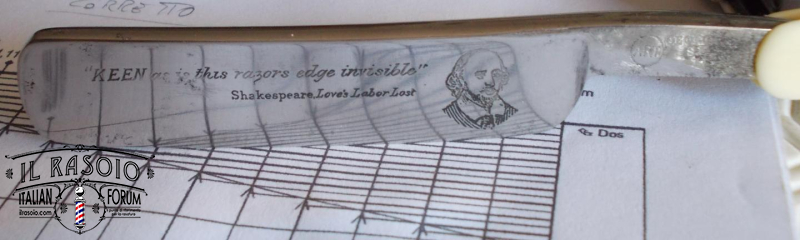 CORRETTO
"KEEN as is this razors edge invisible"
Shakespeare. Love's Labor Lost
m
Dos
IL RASOIO
ITALIAN FORUM
ilrasoio.com